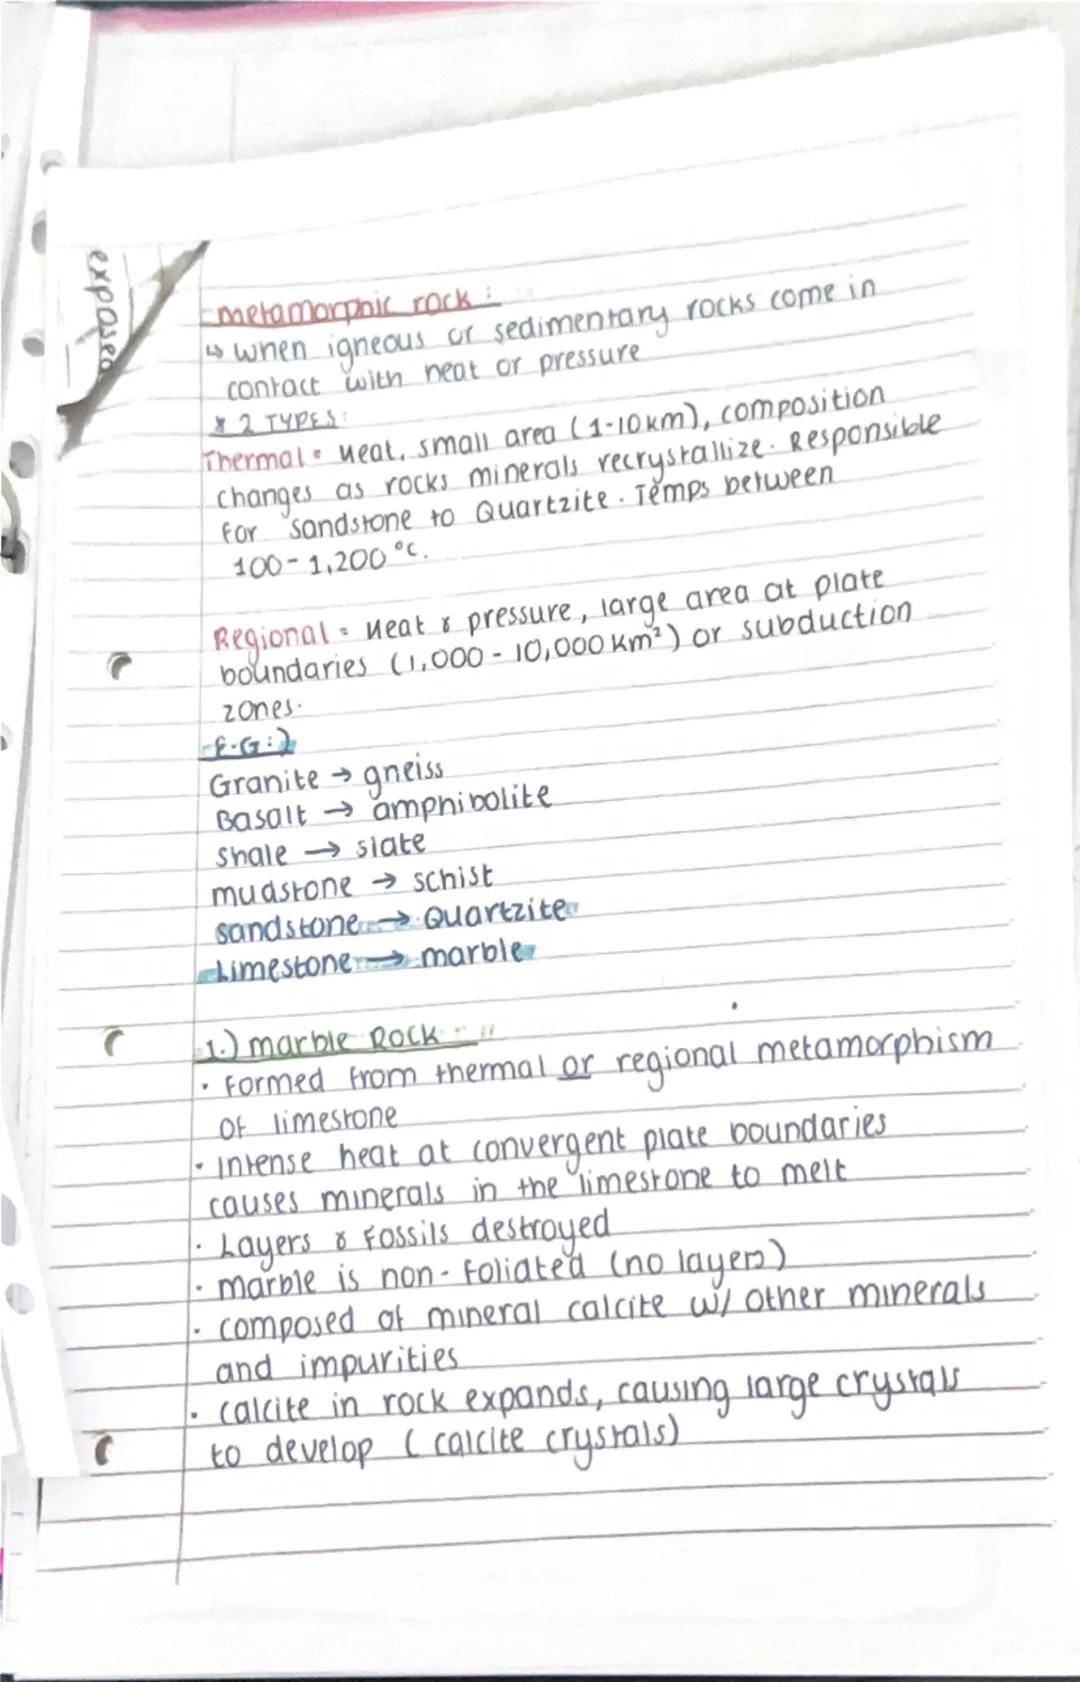 exposed
metamorphic rock :
↳ when igneous or sedimentary rocks come in
contact with heat or pressure
* 2 TYPES:
Thermal = Heat, small area (1-10km), composition
changes as rocks minerals recrystallize. Responsible
for sandstone to Quartzite. Temps between
100-1,200°C.
Regional = Heat & pressure, large area at plate
boundaries (1,000 - 10,000 km²) or subduction
zones.
E.G:)
Granite → gneiss
Basalt → amphibolite
Shale → slate
mudstone → schist
sandstone → Quartzite
Limestone → marble
1.) marble Rock :
• Formed from thermal or regional metamorphism
of limestone
• Intense heat at convergent plate boundaries
causes minerals in the limestone to melt
• Layers & Fossils destroyed
• marble is non-foliated (no layers)
• composed of mineral calcite w/ other minerals
and impurities
• calcite in rock expands, causing large crystals
to develop (calcite crystals)